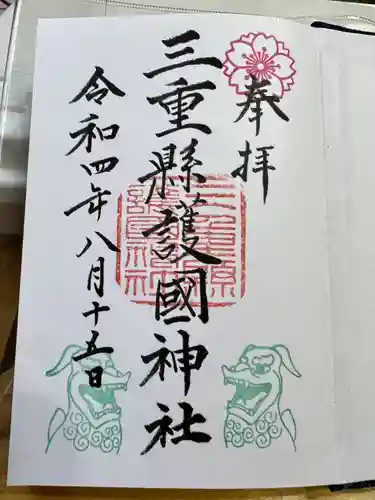 奉拝
三重縣護國神社
令和四年八月十五日